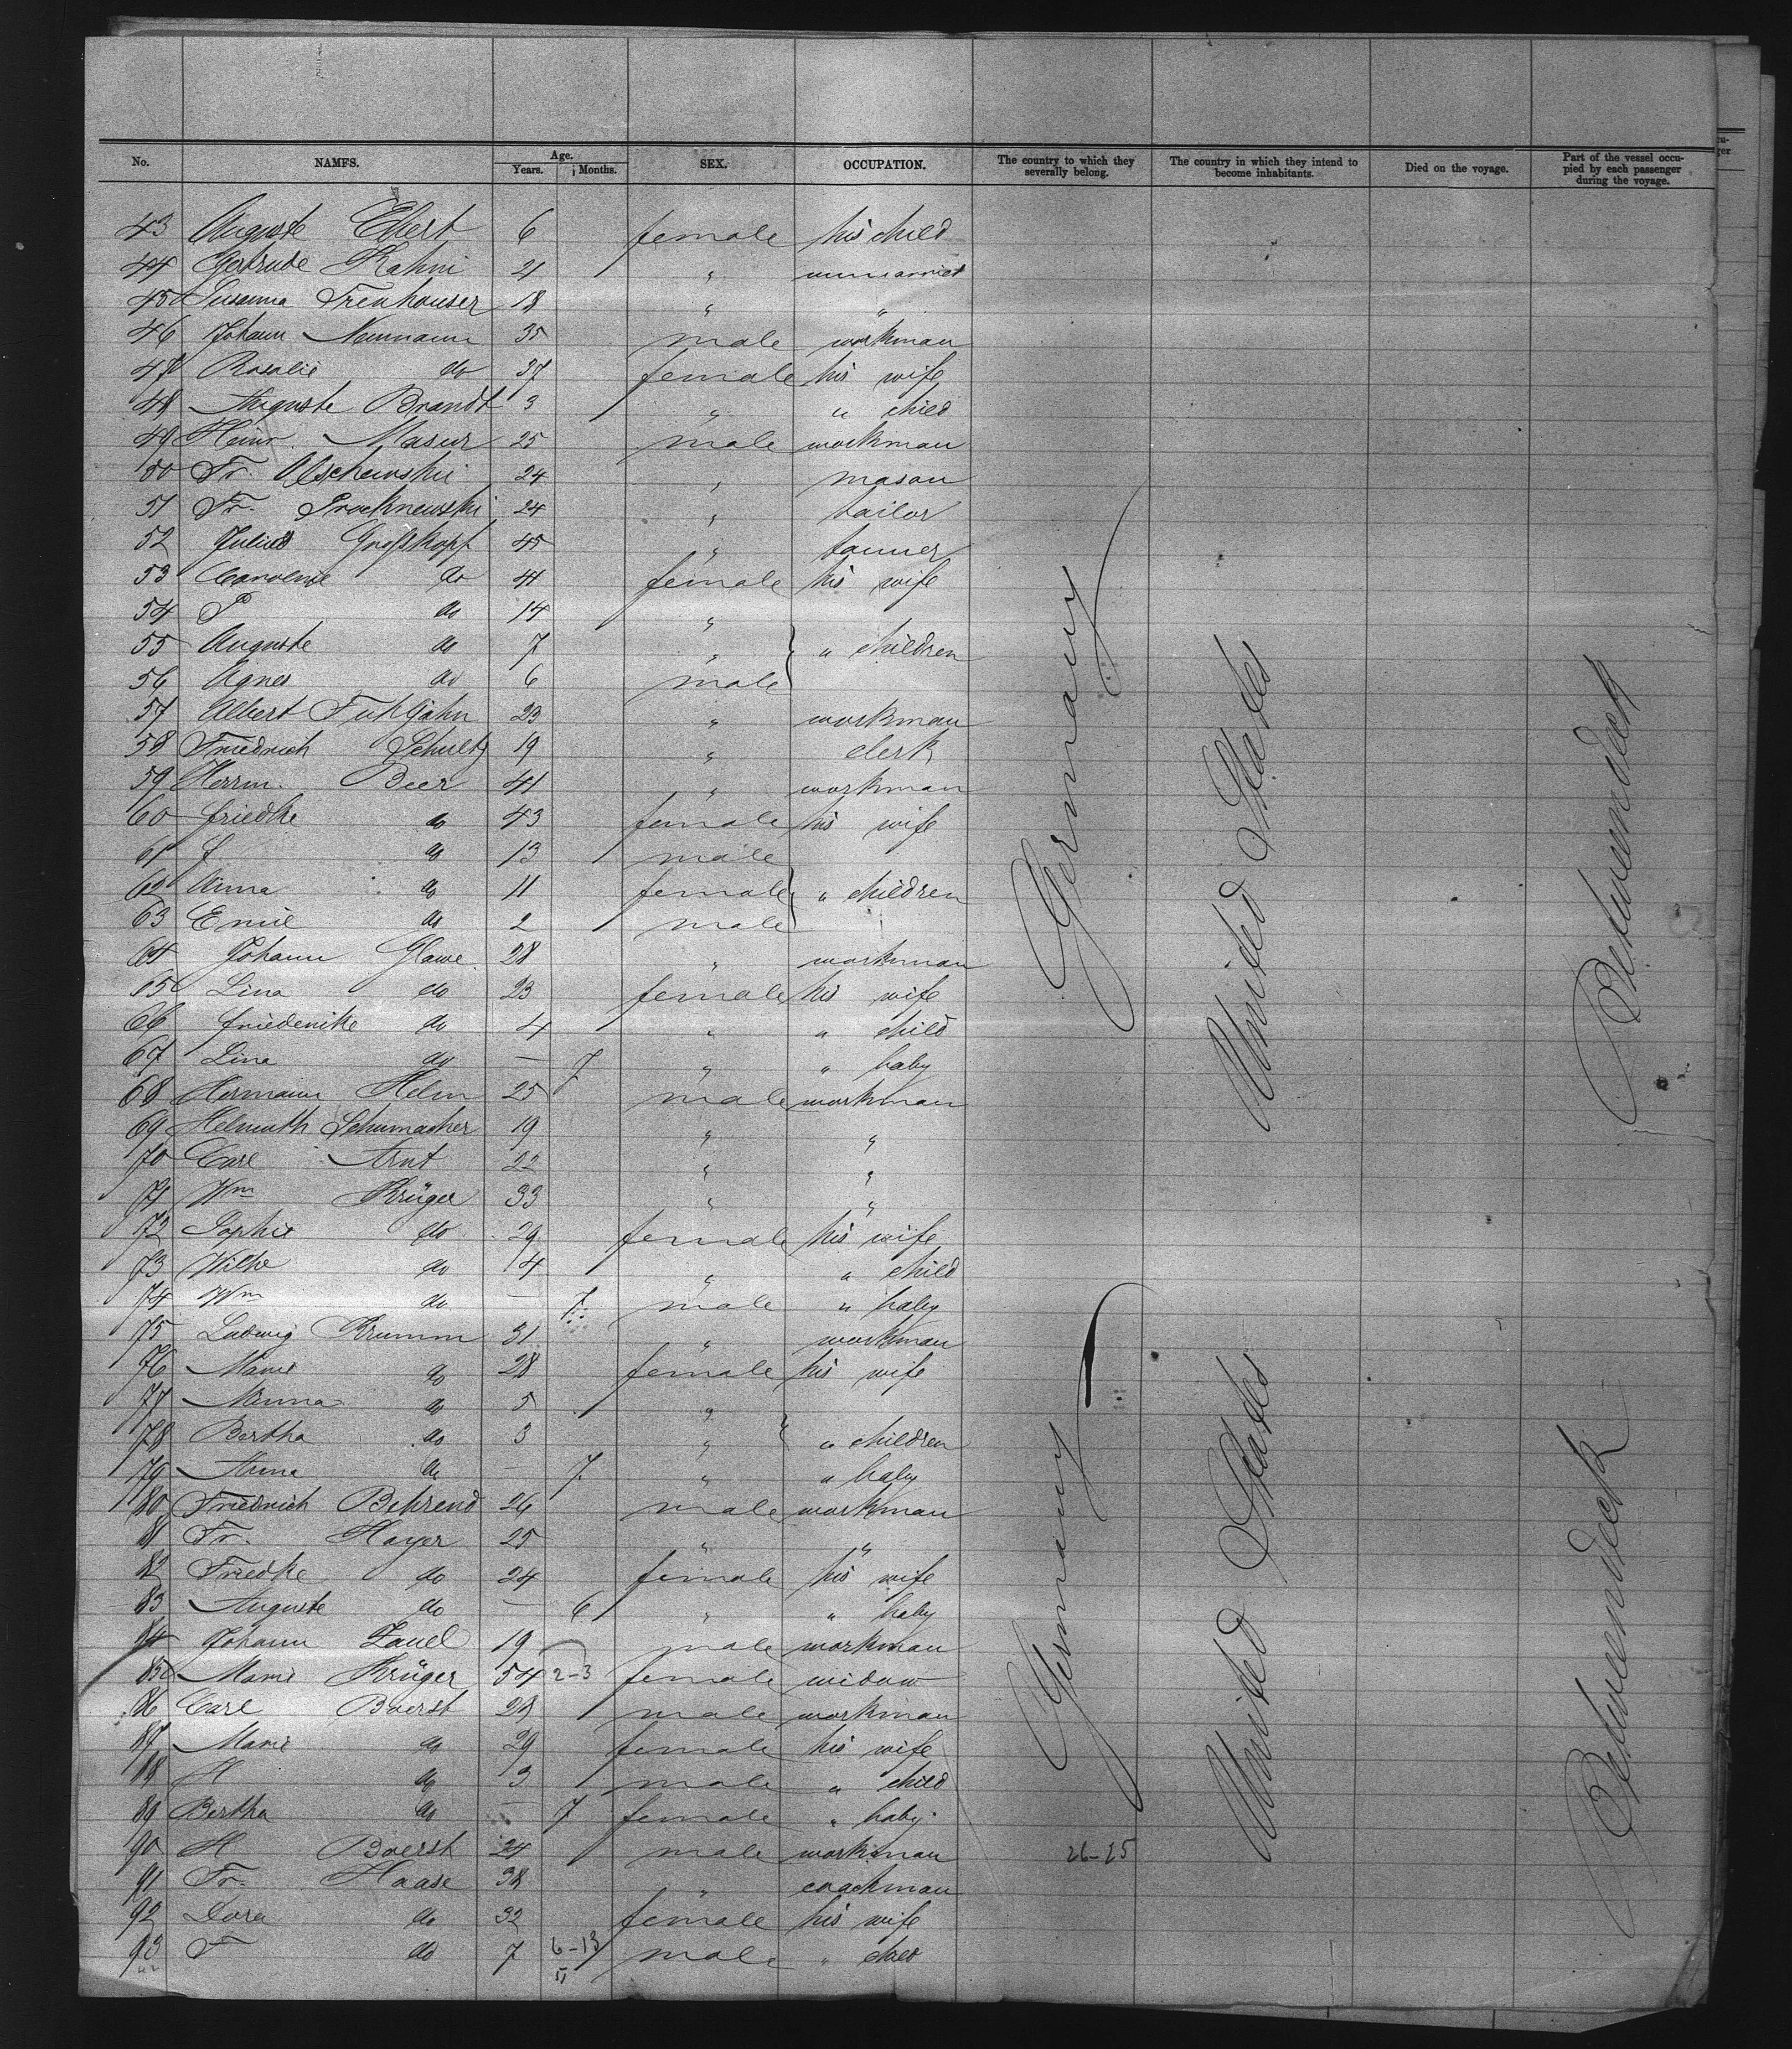 No. NAMES. Age. Years. Months. SEX. OCCUPATION. The country to which they severally belong. The country in which they intend to become inhabitants. Died on the voyage. Part of the vessel occupied by each passenger during the voyage.
43 Auguste Ebert 6 female his child
44 Gertrude Kahni 21 " unmarried
45 Susanna Trenhauser 18 " "
46 Johann Neumann 35 male workman
47 Rosalie do 37 female his wife
48 Auguste Brandt 3 " " child
49 Heinr. Masur 25 male workman
50 Fr. 24 " mason
51 Fr. 24 " tailor
52 Julius Großkopf 45 " tanner
53 Caroline do 41 female his wife
54 P do 14 "
55 Auguste do 7 " " children
56 Agnes do 6 male
57 Albert 23 " workman
58 Friedrich Schultz 19 " clerk
59 Herrm. Beer 41 " workman
60 Friedke do 43 female his wife
61 f do 13 male
62 Anna do 11 female " children
63 Emil do 2 male
64 Johann Glawe 28 " workman
65 Lina do 23 female his wife
66 Friederike do 4 " " child
67 Lina do — 7 " " baby
68 Hermann Helm 25 male workman
69 Helmuth Schumacher 19 " "
70 Carl Arnt 22 " "
71 Wm Krüger 33 " "
72 Sophie do 29 female his wife
73 Wilhe do 14 " " child
74 Wm do — 7 male " baby
75 Ludwig Krumm 31 " workman
76 Marie do 28 female his wife
77 Minna do 5 "
78 Bertha do 3 " " children
79 Anna do — 7 " " baby
80 Friedrich Behrend 26 male workman
81 Fr. Hayer 25 " "
82 Friedke do 24 female his wife
83 Auguste do — 6 " " baby
84 Johann Zauel 19 male workman
85 Marie Krüger 54 2-3 female widow
86 Carl Boerst 28 male workman
87 Marie do 29 female his wife
88 H do 3 male " child
89 Bertha do — 7 female " baby
90 H Boerst 24 male workman 26-25
91 Fr. Haase 38 " coachman
92 Dora do 32 female his wife
93 F do 7 6-13 male " child
Germany
United States
Betweendeck
Germany
United States
Betweendeck